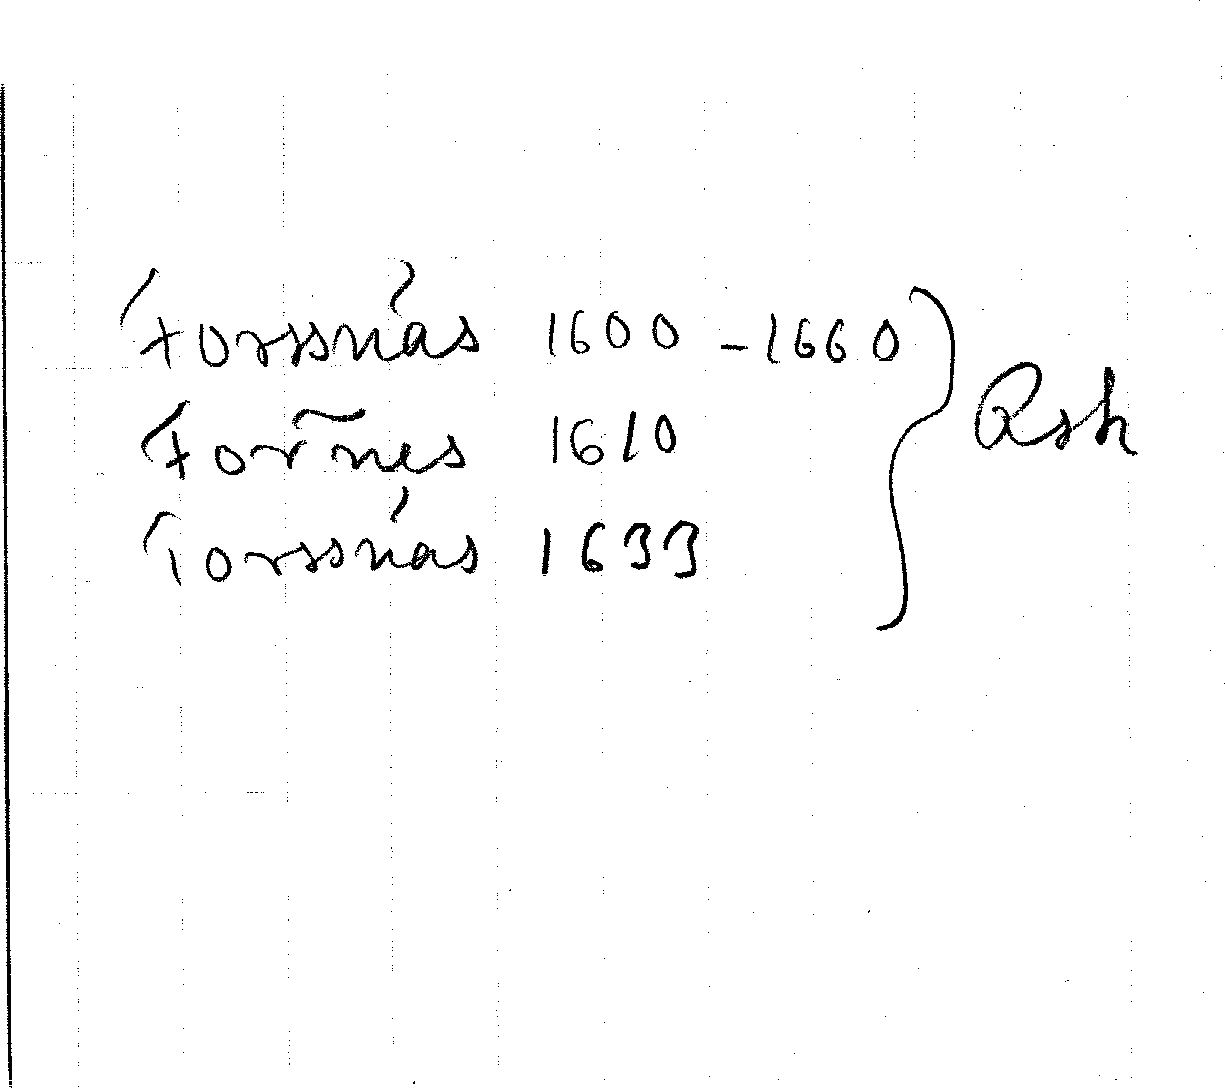 Forssnäs 1600-1660
For̃nes 1610
Torssnäs 1633
Rsk